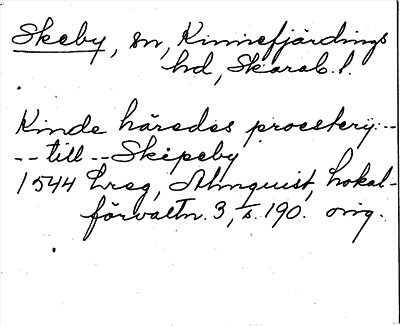 Skeby, sn, Kinnefjärdings
hd, Skarab. l.
Kinde häredes proesterij --
-- till -- Skipeby
1544 Lreg, Almquist, Lokal-
förvaltn. 3, s. 190. orig.